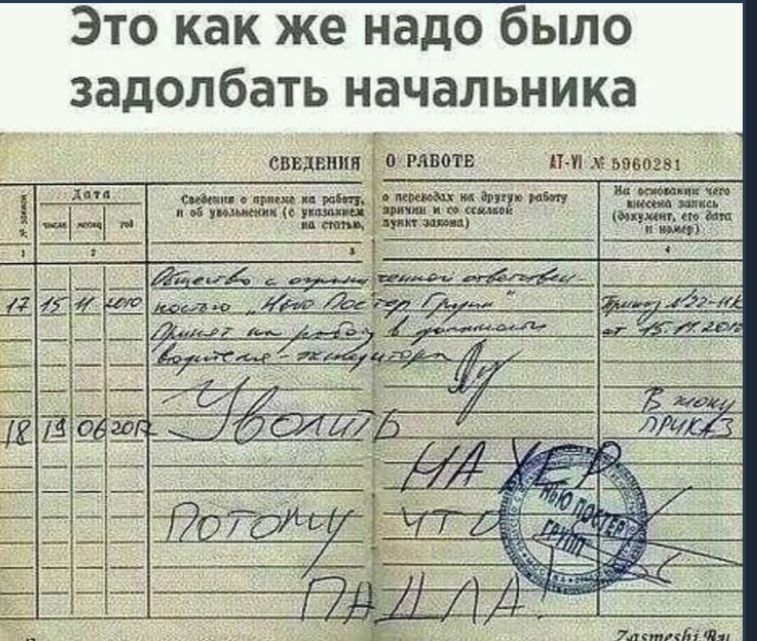 Это как же надо было
задолбать начальника
СВЕДЕНИЯ О РАБОТЕ АТ-VI № 5960281
№ записи
Дата
число месяц год
Сведения о приеме на работу, о переводах на другую работу
и об увольнении (с указанием причин и со ссылкой
на статью, пункт закона)
На основании чего
внесена запись
(документ, его дата
и номер)
1 2 3 4
Общество с ограниченной ответствен-
17 15 11 2010 ностью „Нью Постер Групп" Приказ №22-НК
Принят на работу в должности от 15.11.2010
водителя-экспедитора
18 19 06 2012 Уволить
В жопу
ПРИКАЗ
НА ХЕР
ПОТОМУ ЧТО
ПАДЛА.
НЬЮ ПОСТЕР
ГРУПП
Zasmeshi.Ru